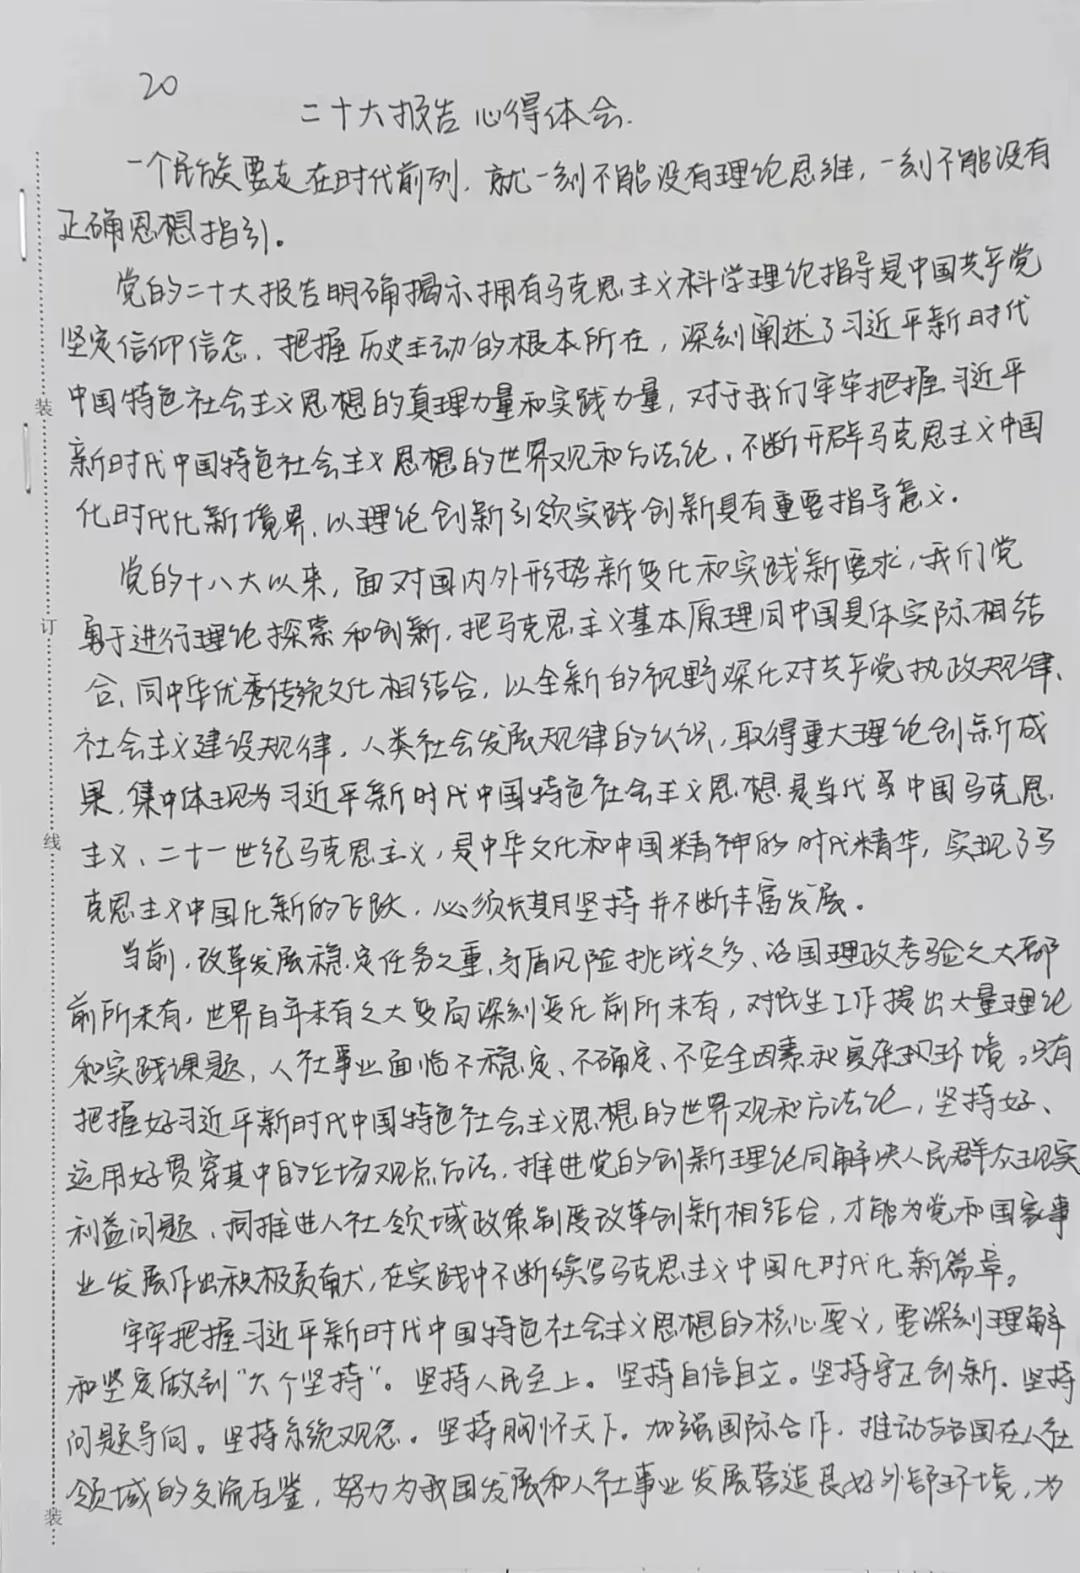 20
二十大报告心得体会.
一个民族要走在时代前列，就一刻不能没有理论思维，一刻不能没有
正确思想指引。
党的二十大报告明确揭示拥有马克思主义科学理论指导是中国共产党
坚定信仰信念、把握历史主动的根本所在，深刻阐述了习近平新时代
中国特色社会主义思想的真理力量和实践力量，对于我们牢牢把握习近平
新时代中国特色社会主义思想的世界观和方法论、不断开辟马克思主义中国
化时代化新境界、以理论创新引领实践创新具有重要指导意义。
党的十八大以来，面对国内外形势新变化和实践新要求，我们党
勇于进行理论探索和创新，把马克思主义基本原理同中国具体实际相结
合、同中华优秀传统文化相结合，以全新的视野深化对共产党执政规律、
社会主义建设规律、人类社会发展规律的认识，取得重大理论创新成
果，集中体现为习近平新时代中国特色社会主义思想是当代中国马克思
主义、二十一世纪马克思主义，是中华文化和中国精神的时代精华，实现了马
克思主义中国化新的飞跃，必须长期坚持并不断丰富发展。
当前，改革发展稳定任务之重、矛盾风险挑战之多、治国理政考验之大都
前所未有，世界百年未有之大变局深刻变化前所未有，对民生工作提出大量理论
和实践课题，人社事业面临不稳定、不确定、不安全因素和复杂环境。只有
把握好习近平新时代中国特色社会主义思想的世界观和方法论，坚持好、
运用好贯穿其中的立场观点方法，推进党的创新理论同解决人民群众现实
利益问题、同推进人社领域政策制度改革创新相结合，才能为党和国家事
业发展作出积极贡献，在实践中不断续写马克思主义中国化时代化新篇章。
牢牢把握习近平新时代中国特色社会主义思想的核心要义，要深刻理解
和坚定做到"六个坚持"。坚持人民至上。坚持自信自立。坚持守正创新。坚持
问题导向。坚持系统观念。坚持胸怀天下。加强国际合作，推动与各国在人社
领域的交流互鉴，努力为我国发展和人社事业发展营造良好外部环境，为
装
订
线
装